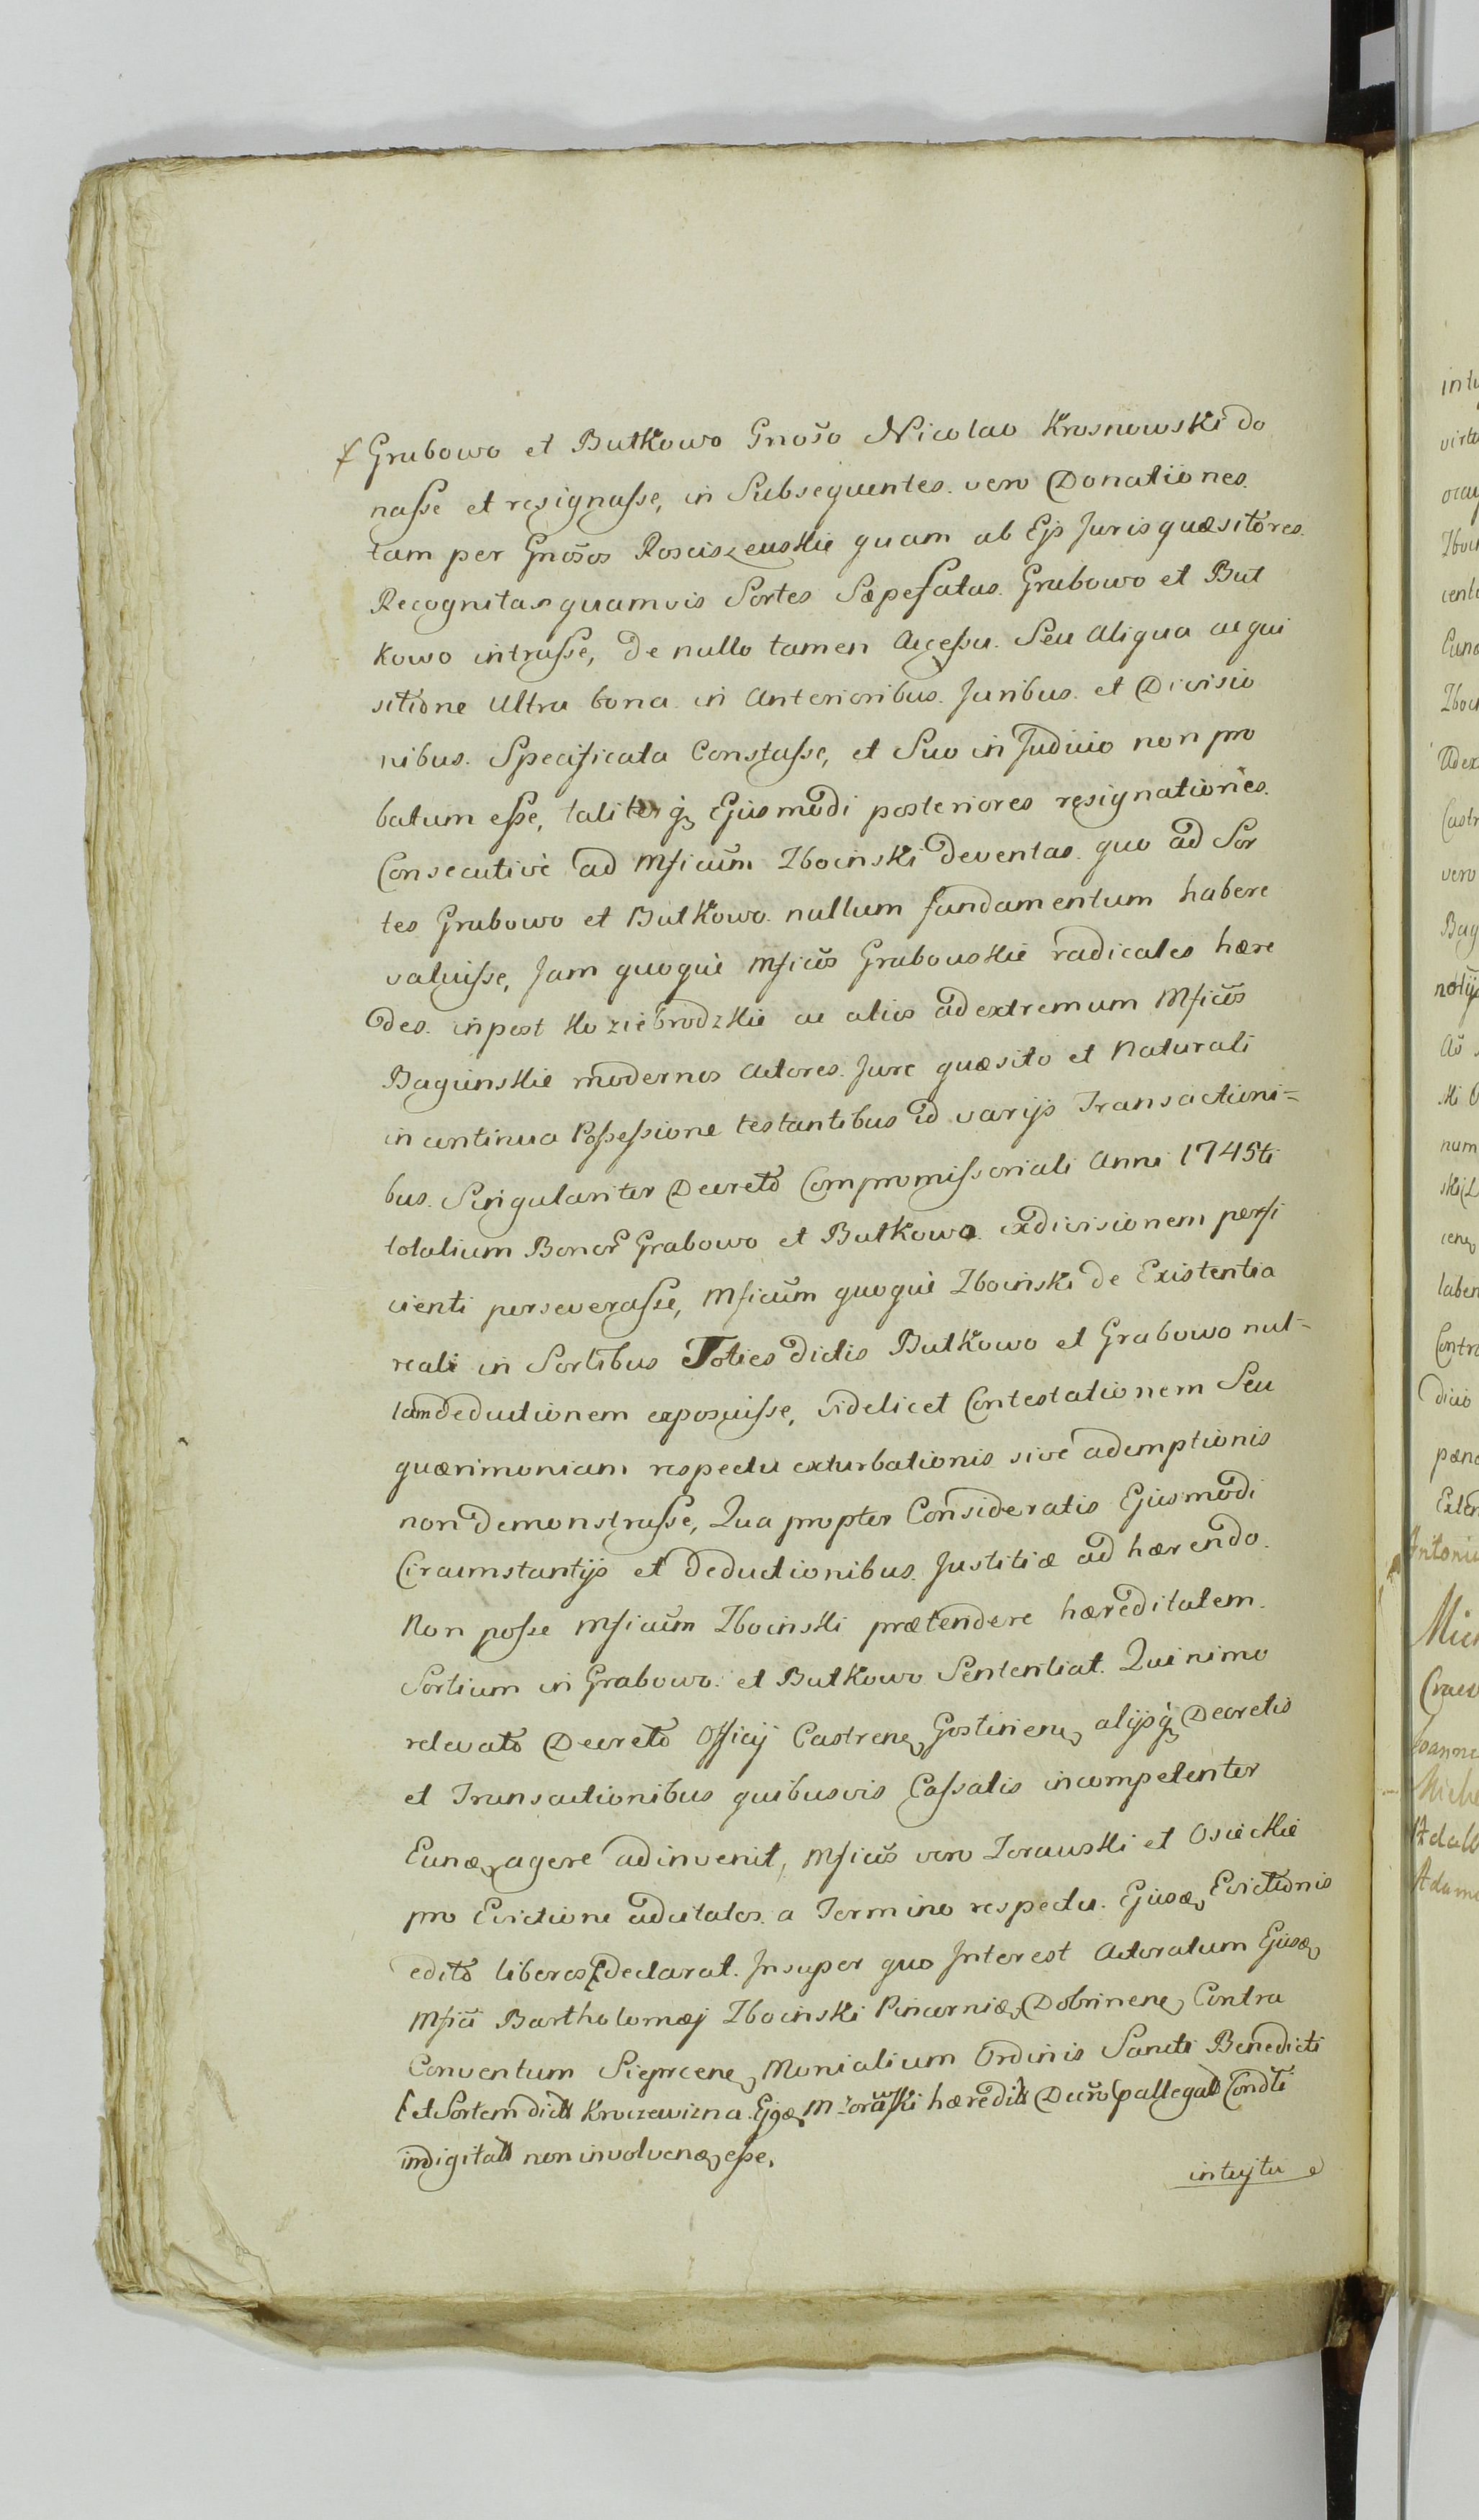 Grabowo et Butkowo Gnoso Nicolao Krosnowski do
nasse et resignasse, in Subsequentes vero Donationes
tam per Gnosos Rosciszewskie quam ab Ejs Juris quæsitores
Recognitas quamvis Sortes Sæpefatas Grabowo et But
kowo intrasse, de nullo tamen Accessu Seu Aliqua acqui
sitione Ultra bona in Anterioribus Juribus et Divisio
nibus Specificata Constasse, et Suo in Judicio non pro
batum esse, taliterq Ejusmodi posteriores resignationes
Consecutivè ad Mficum Zboinski deventas quo ad Sor
tes Grabowo et Butkowo nullum fundamentum habere
valuisse, Jam quoquè Mficos Grabowskie radicales hære
des inpost Koziebrodzkie ac alios ad extremum Mficos
Baginskie modernos Actores Jure quæsito et Naturali
in continua Possessione testantibus id varijs Transactioni=
bus Singulariter Decreto Compromissoriali Anni 1745ti
totalium Bonor Grabowo et Butkowo exdivisionem perfi
cienti perseverasse, Mficum quoquè Zboinski de Existentia
reali in Sortibus Toties dictis Butkowo et Grabowo nul=
lam deductionem exposuisse, videlicet Contestationem Seu
quærimoniam respectu exturbationis sivè ademptionis
non demonstrasse, Qua propter Consideratis Ejusmodi
Circumstantijs et Deductionibus Justitiæ ad hærendo
Non posse Mficum Zboinski prætendere hæreditatem
Sortium in Grabowo et Butkowo Sententiat. Quinimo
relevato Decreto Officij Castren Gostinien alijsq Decretis
et Transactionibus quibusvis Cassatis incompetenter
Eund agere adinvenit, Mficos vero Zorawski et Osieckie
pro Evictione adcitatos a Termino respectu Ejusd Evictionis
edito liberos declarat. Insuper quo Interest Actoratum Ejusd
Mfici Bartholomæj Zboinski Pincernæ Dobrinen Contra
Conventum Sieprcen Monialium Ordinis Sancti Benedicti
et Sortem dict Kroczewizna Ejsd M Zorawski hæredit
indigitat non involvend esse.
intujtu